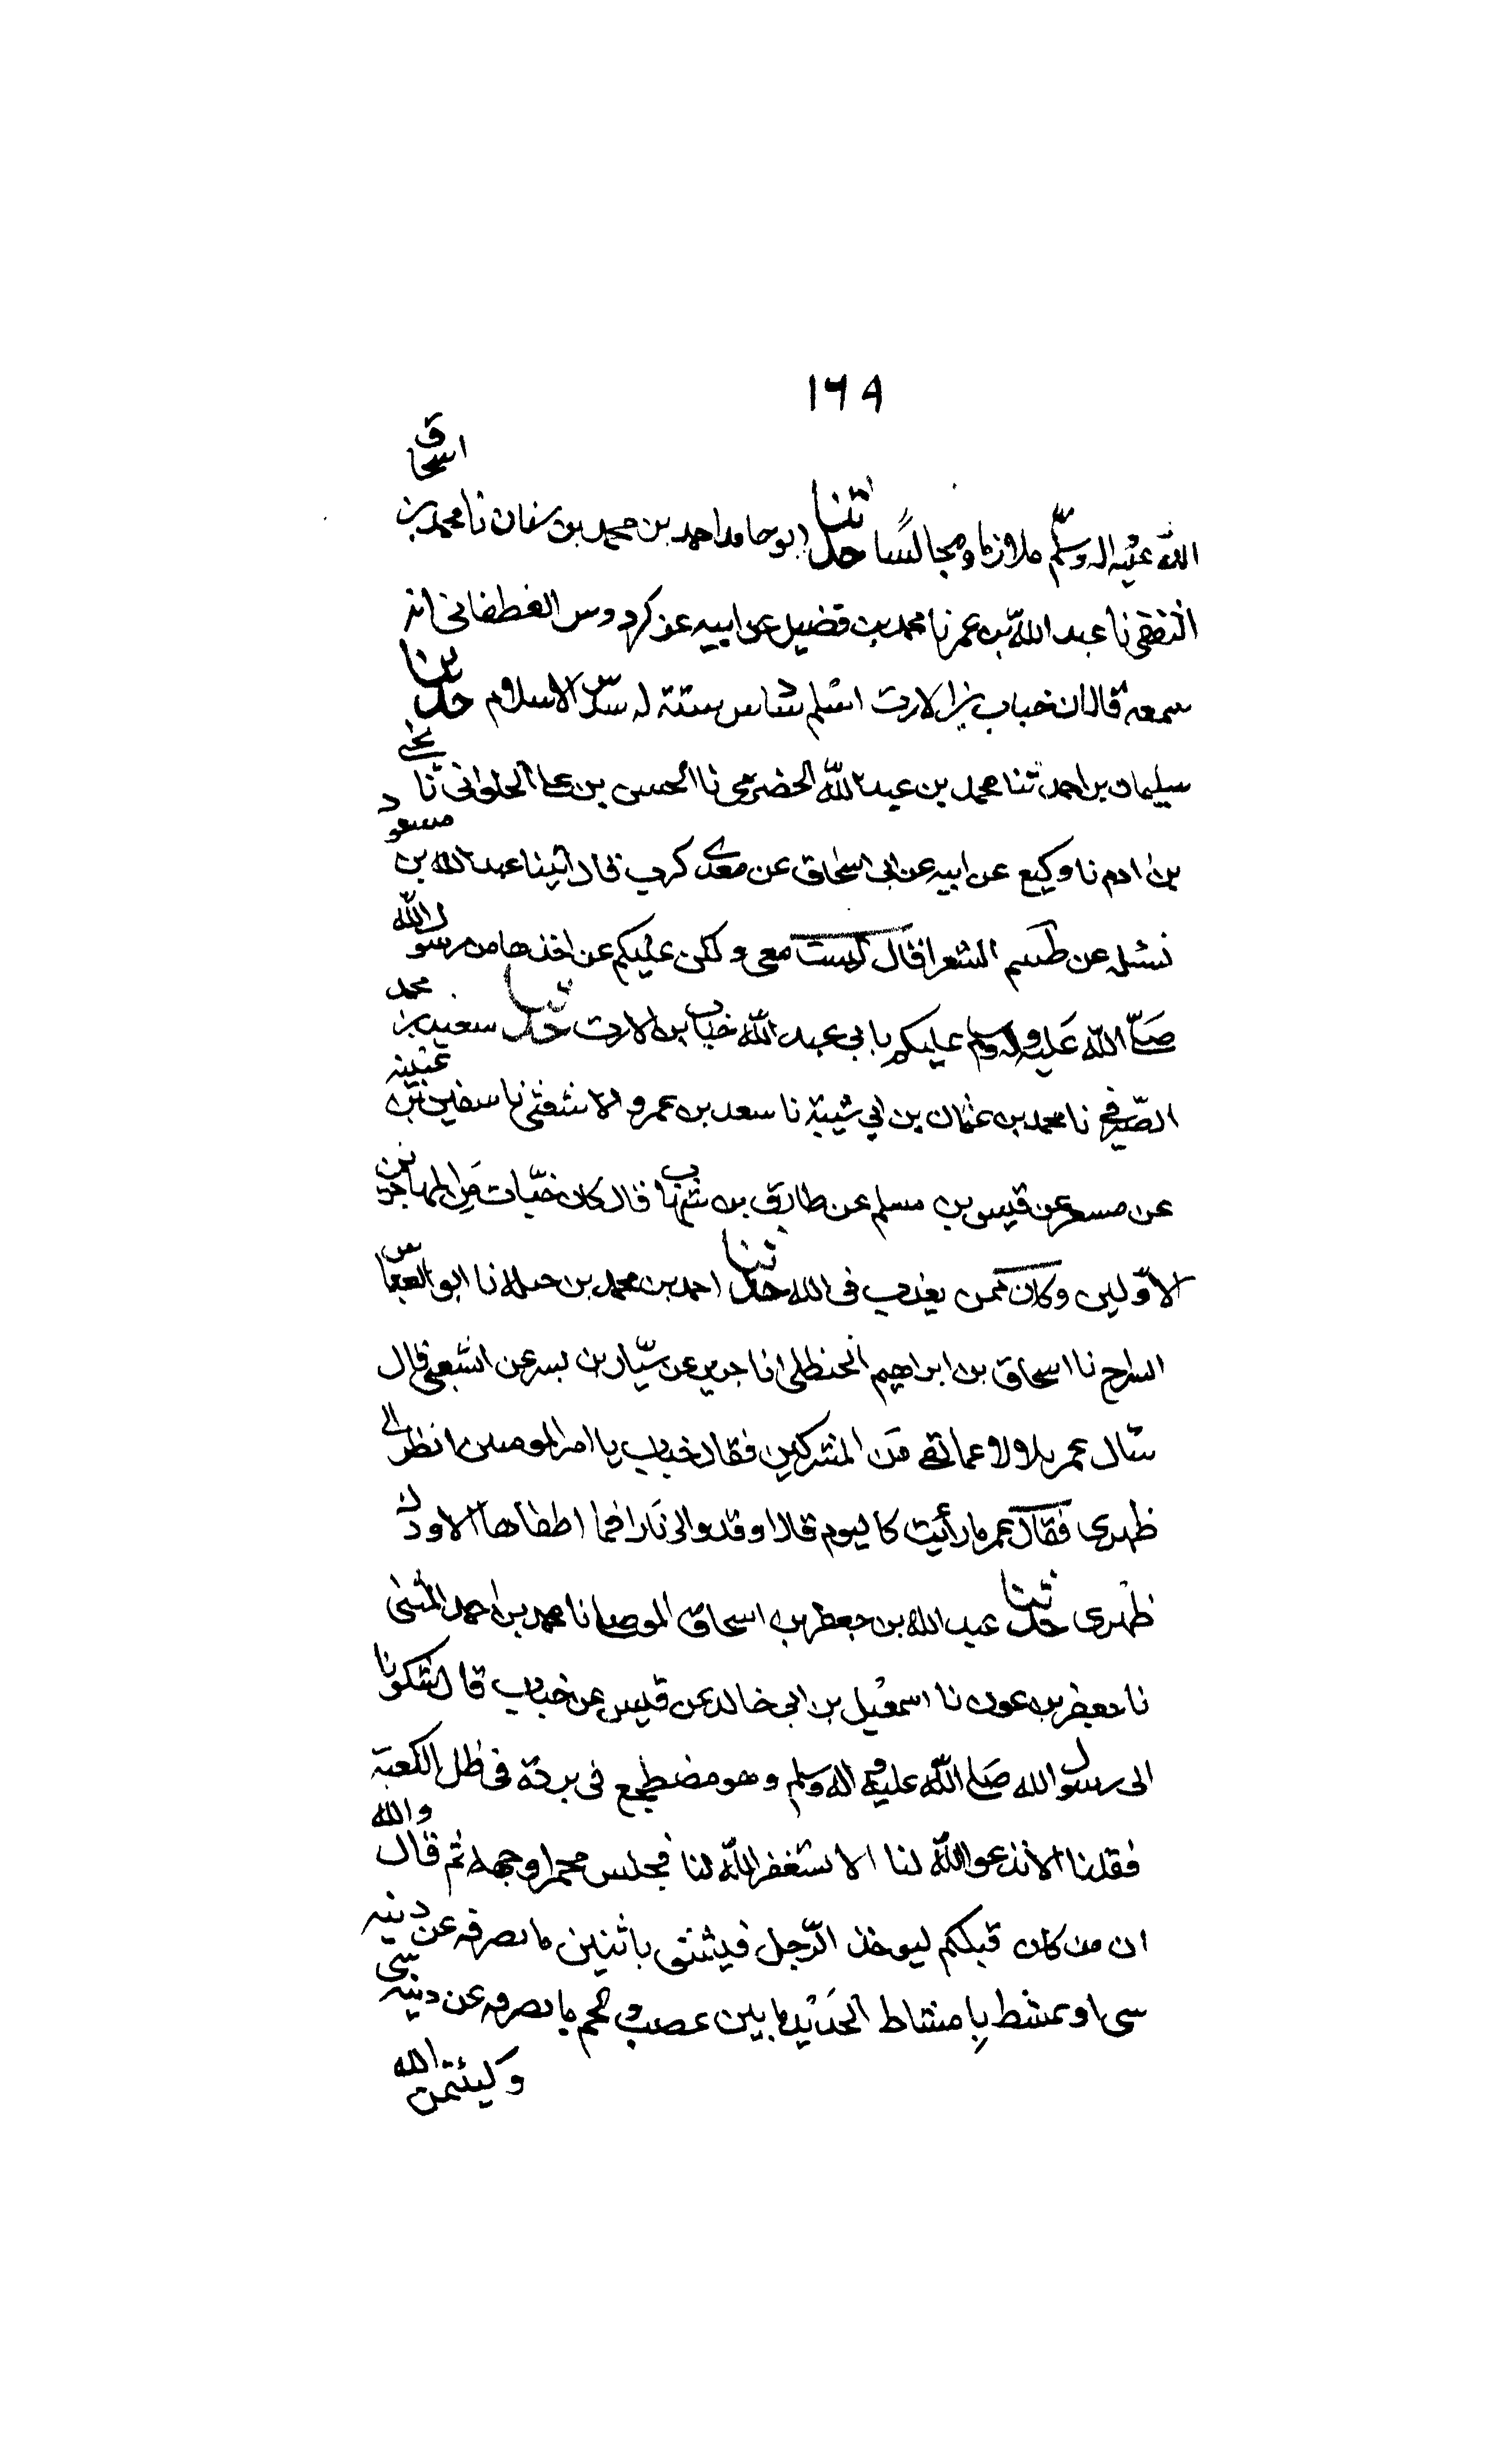 ١٦٩
الله عليه اله وسلّم ملازما ومجالسًا حدثنا ابو حامد احمد بن محمد بن سنان نا محمد بن اسحاق
الثقفى نا عبد الله بن عمر نا محمد بن فضيل عن ابيه عن كردوس الغطفانى انه
سمعه قال ان خباب بن الارت اسلم سادس ستة له سدس الاسلام حدثنا
سليمان بن احمد ثنا محمد بن عبد الله الحضرمى نا الحسن بن على الحلوانى نا يحيى
بن ادم نا وكيع عن ابيه عن ابى اسحاق عن معدى كرب قال اتينا عبد الله بن مسعود
نسئله عن طسم الشعرا فقال ليست معى ولكن عليكم عن اخذها من رسول الله
صلّى الله عليه واله وسلم عليكم بابى عبد الله خباب بن الارت حدثنا سعيد بن محمد
الصيرفى نا محمد بن عثمان بن ابى شيبة نا سعد بن عمرو الاشعثى نا سفين بن عيينه
عن مسعر عن قيس بن مسلم عن طارق بن شهاب قال كان خبّاب من المهاجرين
الاوّلين وكان ممن يعذب فى الله حدثنا احمد بن محمد بن جبلة نا ابو العباس
السراج نا اسحاق بن ابراهيم الحنظلى انا جرير عن سيّار بن بسر عن الشعبى قال
سال عمر بلالا عما لقى من المشركين فقال خباب يا امير المومنين انظر الى
ظهرى فقال عمر ما رأيت كاليوم قال اوقدوا لى نارا فما اطفاها الا ودك
ظهرى حدثنا عبد الله بن جعفر بن اسحاق الموصلى نا محمد بن احمد المثنى
نا جعفر بن عون نا اسمعيل بن ابى خالد عن قيس عن خباب قال شكونا
الى رسول الله صلى الله عليه واله وسلم وهو مضطجع فى بردة فى ظل الكعبة
فقلنا الا تدعو الله لنا الا تستغفر الله لنا فجلس محمرا وجهه ثم قال والله
ان من كان قبلكم ليوخذ الرّجل فيشق باثنين ما يصرفه عن دينه
سى او يمشط بامشاط الحديد ما بين عصب ولحم ما يصرفه عن دينه سى
وليئتمن الله